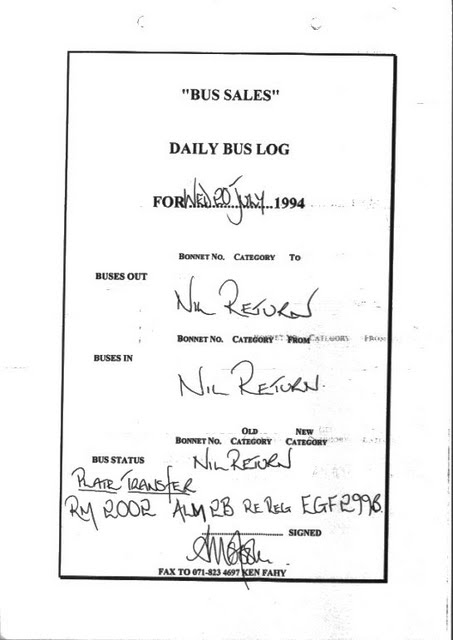 "BUS SALES"
DAILY BUS LOG
FOR WED 20 JULY 1994
BONNET NO. CATEGORY TO
BUSES OUT
NIL RETURN
BONNET NO. CATEGORY FROM
BUSES IN
NIL RETURN.
OLD NEW
BONNET NO. CATEGORY CATEGORY
BUS STATUS
NIL RETURN
PLATE TRANSFER
RM 2002 ALM 2B RE REG EGF 299B.
SIGNED
FAX TO 071-823 4697 KEN FAHY